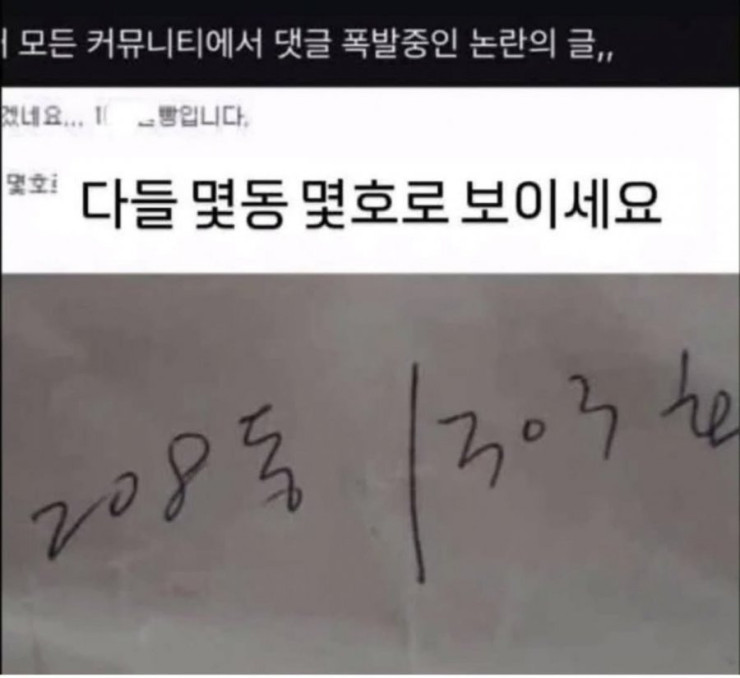 모든 커뮤니티에서 댓글 폭발중인 논란의 글,,
겠네요... 빵입니다.
몇호
다들 몇동 몇호로 보이세요
208동 | 303호